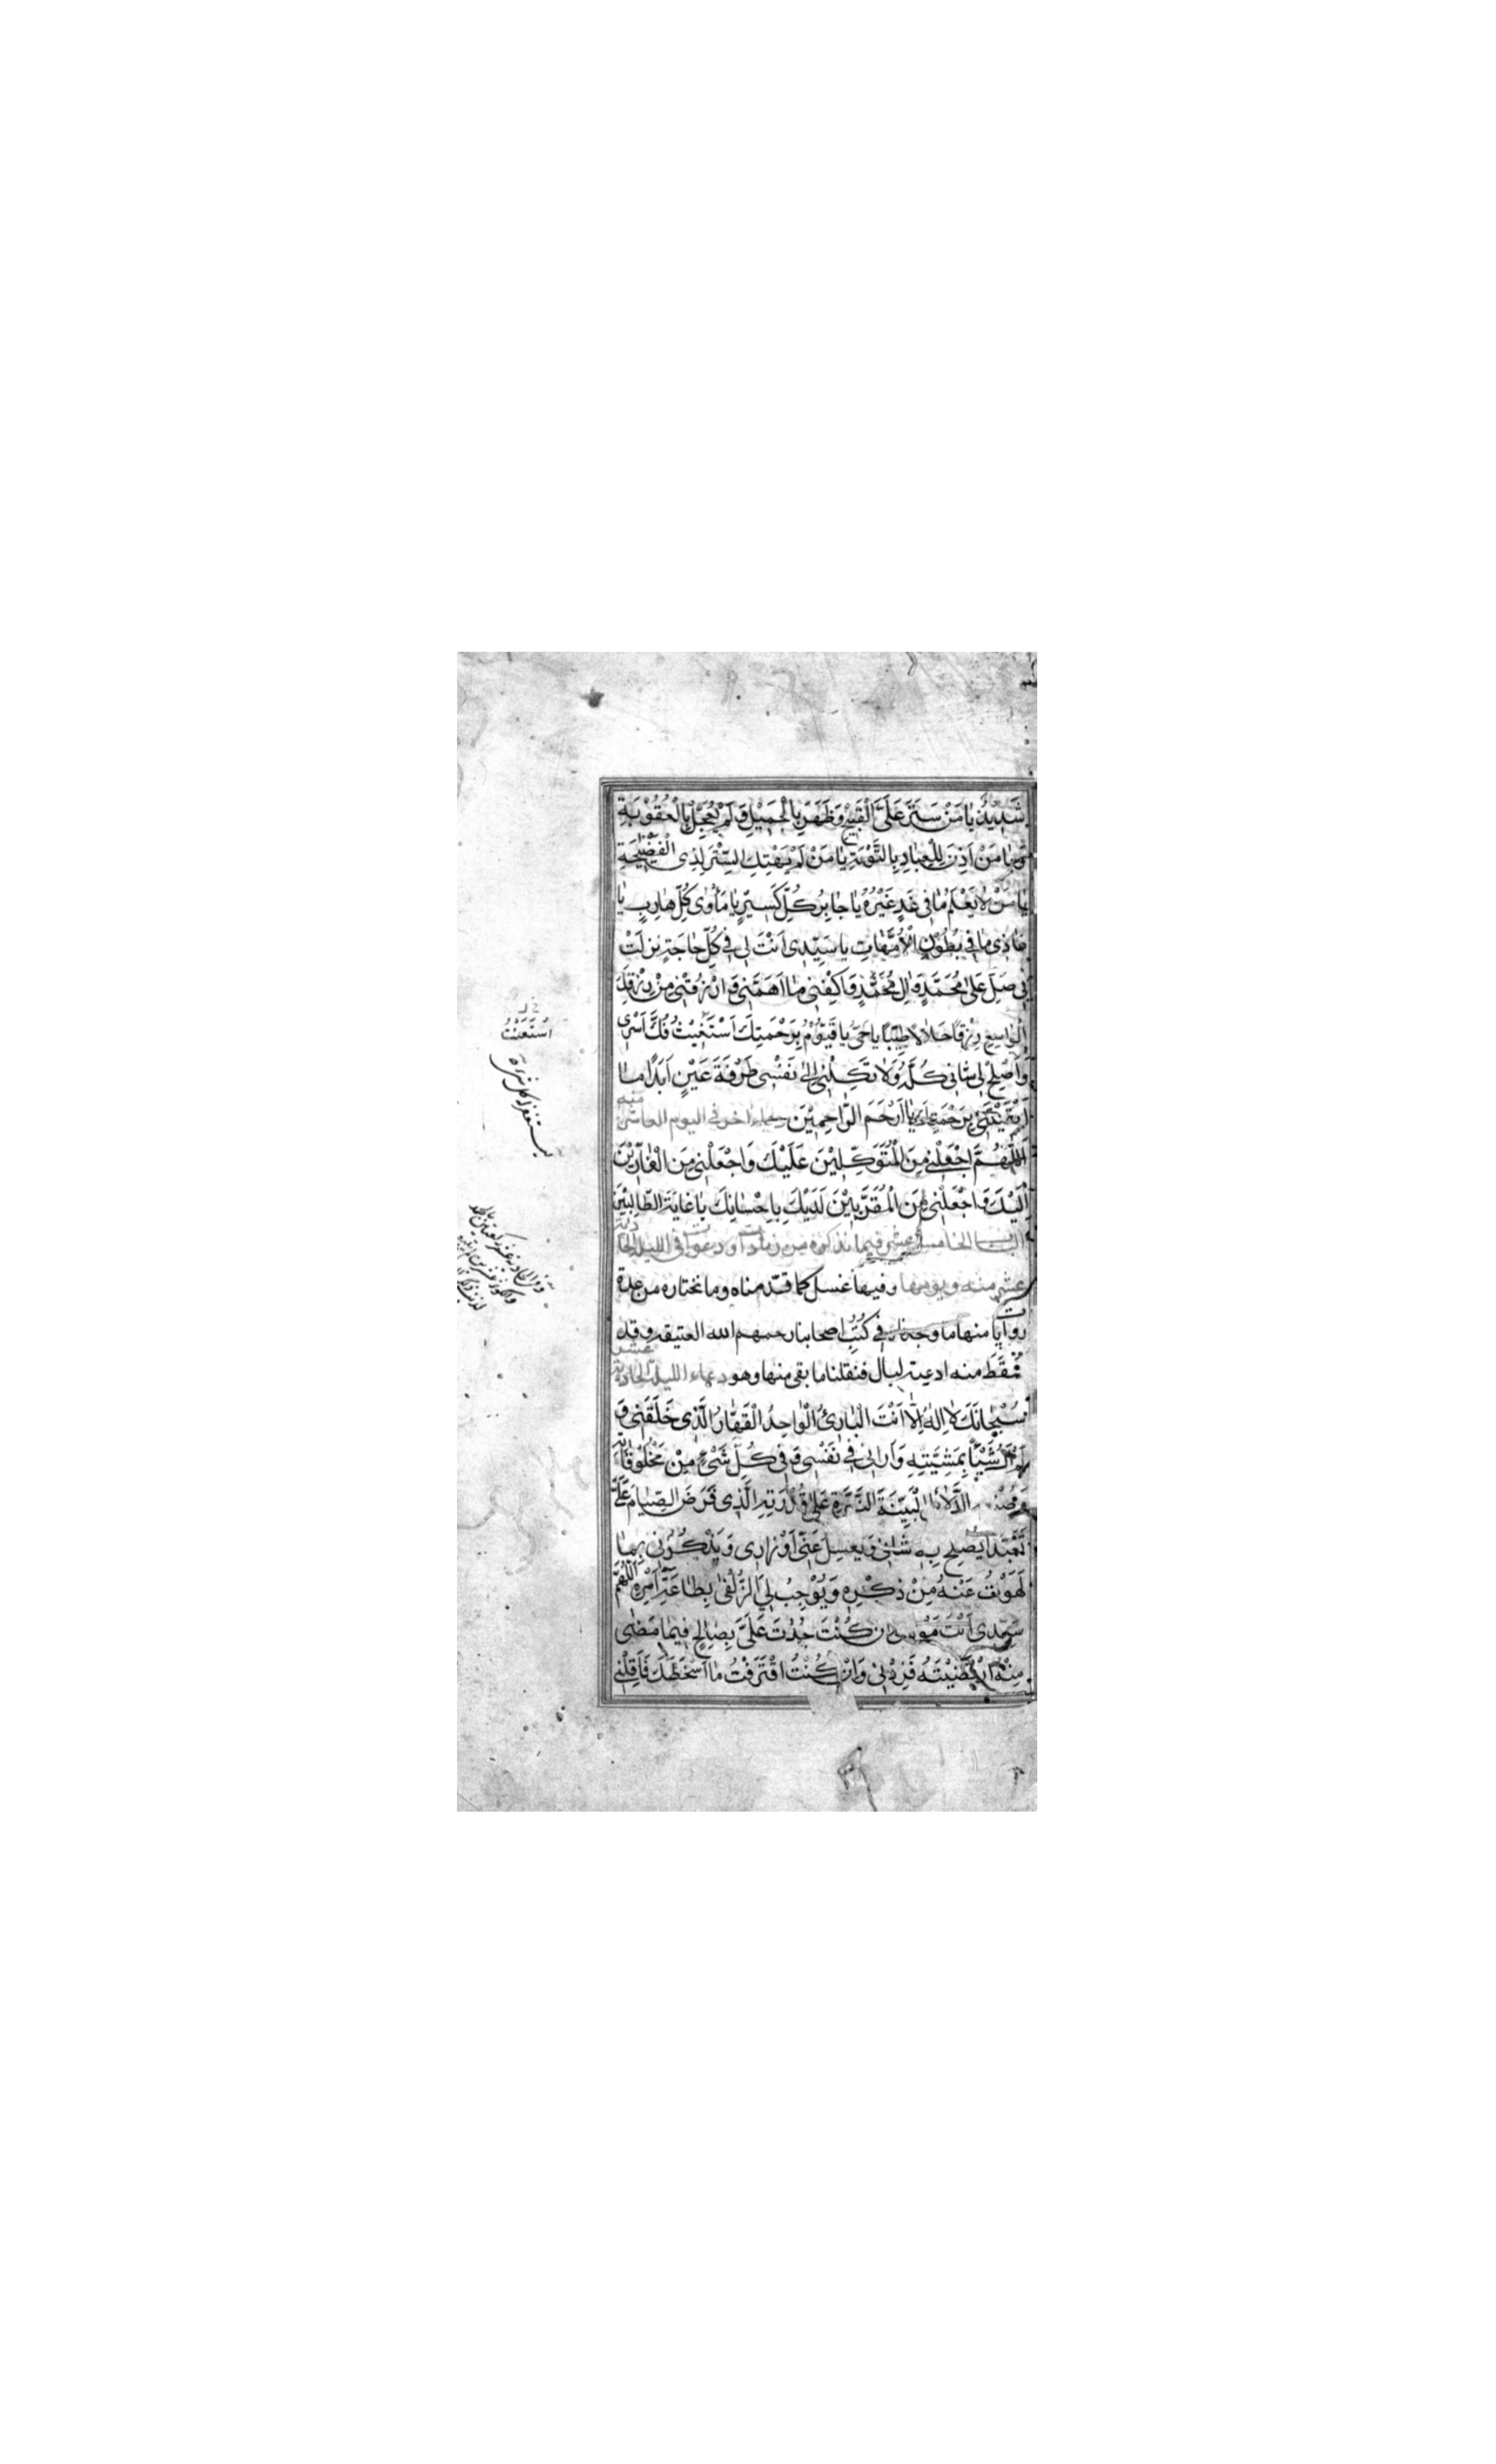 شَدِيدٌ يَا مَنْ سَتَرَ عَلَيَّ الْقَبِيحَ وَظَهَرَ بِالْجَمِيلِ وَلَمْ يُعَجِّلْ بِالْعُقُوبَةِ
وَيَا مَنْ اَذِنَ لِلْعِبَادِ بِالتَّوْبَةِ يَا مَنْ لَمْ يَهْتِكِ السِّتْرَ لِذِى الْفَضِيحَةِ
يَا مَنْ لَا يَعْلَمُ مَا فِى غَدٍ غَيْرُهُ يَا جَابِرَ كُلِّ كَسِيرٍ يَا مَأْوٰى كُلِّ هَارِبٍ يَا
غَاذِى مَا فِى بُطُونِ الْاُمَّهَاتِ يَا سَيِّدِى اَنْتَ لِى فِى كُلِّ حَاجَةٍ نَزَلَتْ
بِى صَلِّ عَلٰى مُحَمَّدٍ وَاٰلِ مُحَمَّدٍ وَاكْفِنِى مَا اَهَمَّنِى وَارْزُقْنِى مِنْ رِزْقِكَ
الْوَاسِعِ رِزْقًا حَلَالًا طَيِّبًا يَا حَىُّ يَا قَيُّوْمُ بِرَحْمَتِكَ اَسْتَغِيثُ فُكَّ اَسْرِى
وَاَصْلِحْ لِى شَانِى كُلَّهُ وَلَا تَكِلْنِى اِلٰى نَفْسِى طَرْفَةَ عَيْنٍ اَبَدًا مَا
اَبْقَيْتَنِى بِرَحْمَتِكَ يَا اَرْحَمَ الرَّاحِمِيْنَ دعاء اخر فى اليوم العاشر منه
اَللّٰهُمَّ اجْعَلْنِى مِنَ الْمُتَوَكِّلِيْنَ عَلَيْكَ وَاجْعَلْنِى مِنَ الْفَائِزِيْنَ
اِلَيْكَ وَاجْعَلْنِى مِنَ الْمُقَرَّبِيْنَ لَدَيْكَ بِاِحْسَانِكَ يَا غَايَةَ الطَّالِبِيْنَ
الباب الخامس عشر فيما نذكره من زيادات ودعوات فى الليلة الحادية
عشر منه ويومها وفيها غسل كما قدّمناه وما نختاره من عدة
روايات منها ما وجدناه فى كُتُبِ اصحابنا رحمهم الله العتيقه وقد
سُقَطَ منه ادعية ليال فنقلنا ما بقى منها وهو دعاء الليلة الحادية عشر
سُبْحَانَكَ لَا اِلٰهَ اِلَّا اَنْتَ الْبَارِئُ الْوَاحِدُ الْقَهَّارُ الَّذِى خَلَقَنِى وَ
لَمْ اَكُ شَيْئًا بِمَشِيَّتِهِ وَاَرَانِى فِى نَفْسِى وَفِى كُلِّ شَىْءٍ مِنْ مَخْلُوقَاتِهِ
الْبَيِّنَةَ عَلٰى قُدْرَتِهِ الَّذِى فَرَضَ الصِّيَامَ عَلَىَّ
تَعَبُّدًا يُصْلِحُ بِهِ شَانِى وَيَغْسِلُ عَنِّى اَوْزَارِى وَيُذَكِّرُنِى بِمَا
لَهَوْتُ عَنْهُ مِنْ ذِكْرِهِ وَيُوْجِبُ لِىَ الزُّلْفٰى بِطَاعَةِ اَمْرِهِ اَللّٰهُمَّ
سَيِّدِى اَنْتَ مَوْلَاىَ اِنْ كُنْتَ جُدْتَ عَلَىَّ بِصَالِحٍ فِيمَا مَضٰى
مِنْهُ ارْتَضَيْتَهُ فَزِدْنِى وَاِنْ كُنْتُ اقْتَرَفْتُ مَا اَسْخَطَكَ فَاَقِلْنِى
اسْتَعَنْتُ